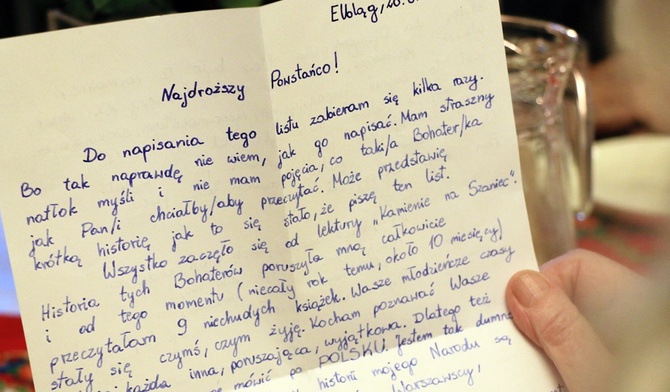 Elbląg,
Najdroższy Powstańco!
Do napisania tego listu zabieram się kilka razy.
Bo tak naprawdę nie wiem, jak go napisać. Mam straszny
natłok myśli i nie mam pojęcia, co taki/a Bohater/ka
jak Pan/i chciałby/aby przeczytać. Może przedstawię
krótką historię jak to się stało, że piszę ten list.
Wszystko zaczęło się od lektury "Kamienie na Szaniec".
Historia tych Bohaterów poruszyła mną całkowicie
i od tego momentu (niecały rok temu, około 10 miesięcy)
przeczytałam 9 niechudych książek. Wasze młodzieńcze czasy
stały się czymś, czym żyję. Kocham poznawać Wasze
każda inna, poruszająca, wyjątkowa. Dlatego też
mówić po POLSKU jestem tak dumna
historii mojego Narodu są
Warszawscy,